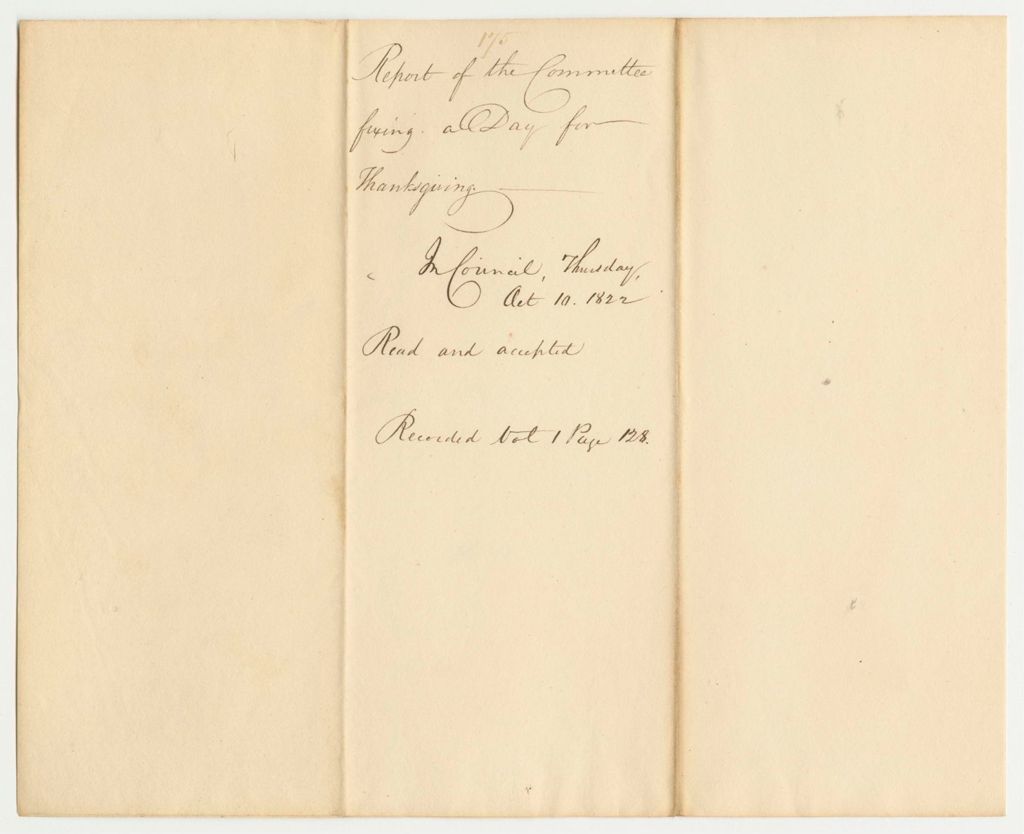 175
Report of the Committee
fixing a Day for
Thanksgiving.
In Council, Thursday,
Oct 10. 1822
Read and accepted
Recorded Vol 1 Page 128.